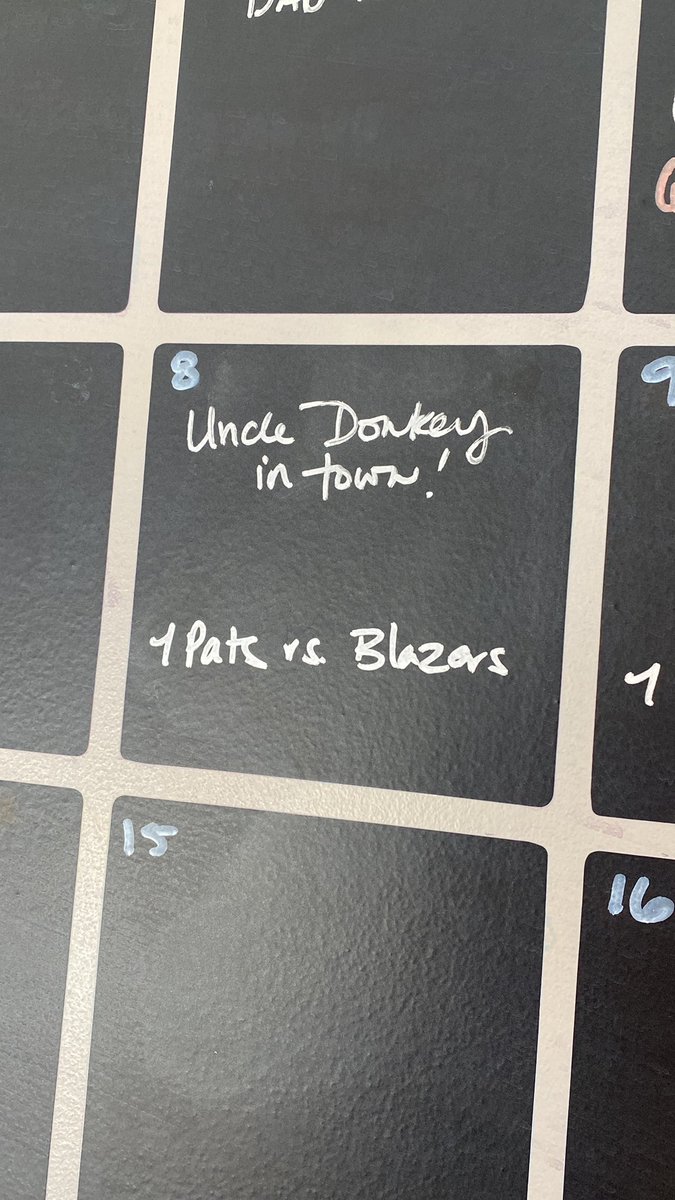 DAD
8
9
Uncle Donkey
in town!
1 Pats vs. Blazers
1
15
16